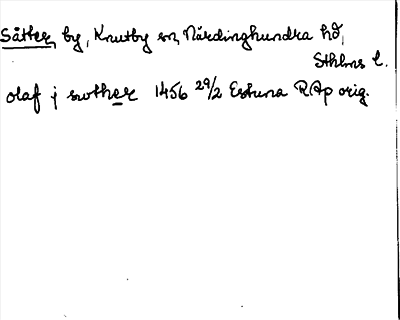 Såtter, by, Knutby sn, Närdinghundra hd,
Sthlms l.
olaf j swther 1456 29/2 Estuna RAp orig.